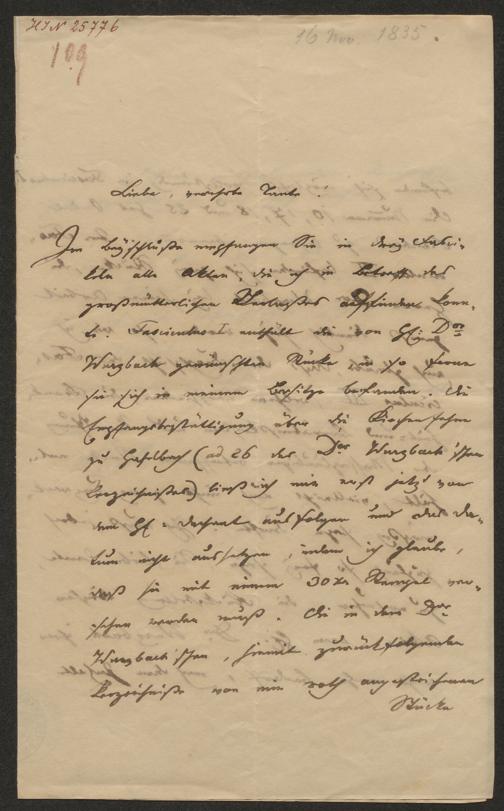 HIN 25776
109
16 Nov. 1835.
Liebe, verehrte Tante!
Im Beyschluße empfangen Sie in drey Fasci-
keln alle Akten, die ich in Betreff des
großmütterlichen Verlaßes auffinden konn-
te. Fascikel enthält die von H: Dor
Wurzbach gewünschten Stücke in so ferne
sie sich in meinem Besitze befanden. Die
Empfangsbestättigung über die Kirchenfahne
zu Haselbach (ad 26 des Dor Wurzbach'schen
Verzeichnißes) ließ ich mir erst jetzt von
dem H: Dechant ausfolgen und das Da-
tum nicht aussetzen, indem ich glaube,
daß sie mit einem 30xr Stempel ver-
sehen werden muß. Die in dem Dor
Wurzbach'schen, hiemit zurückfolgenden
Verzeichniße von mir roth angestrichenen
Stücke